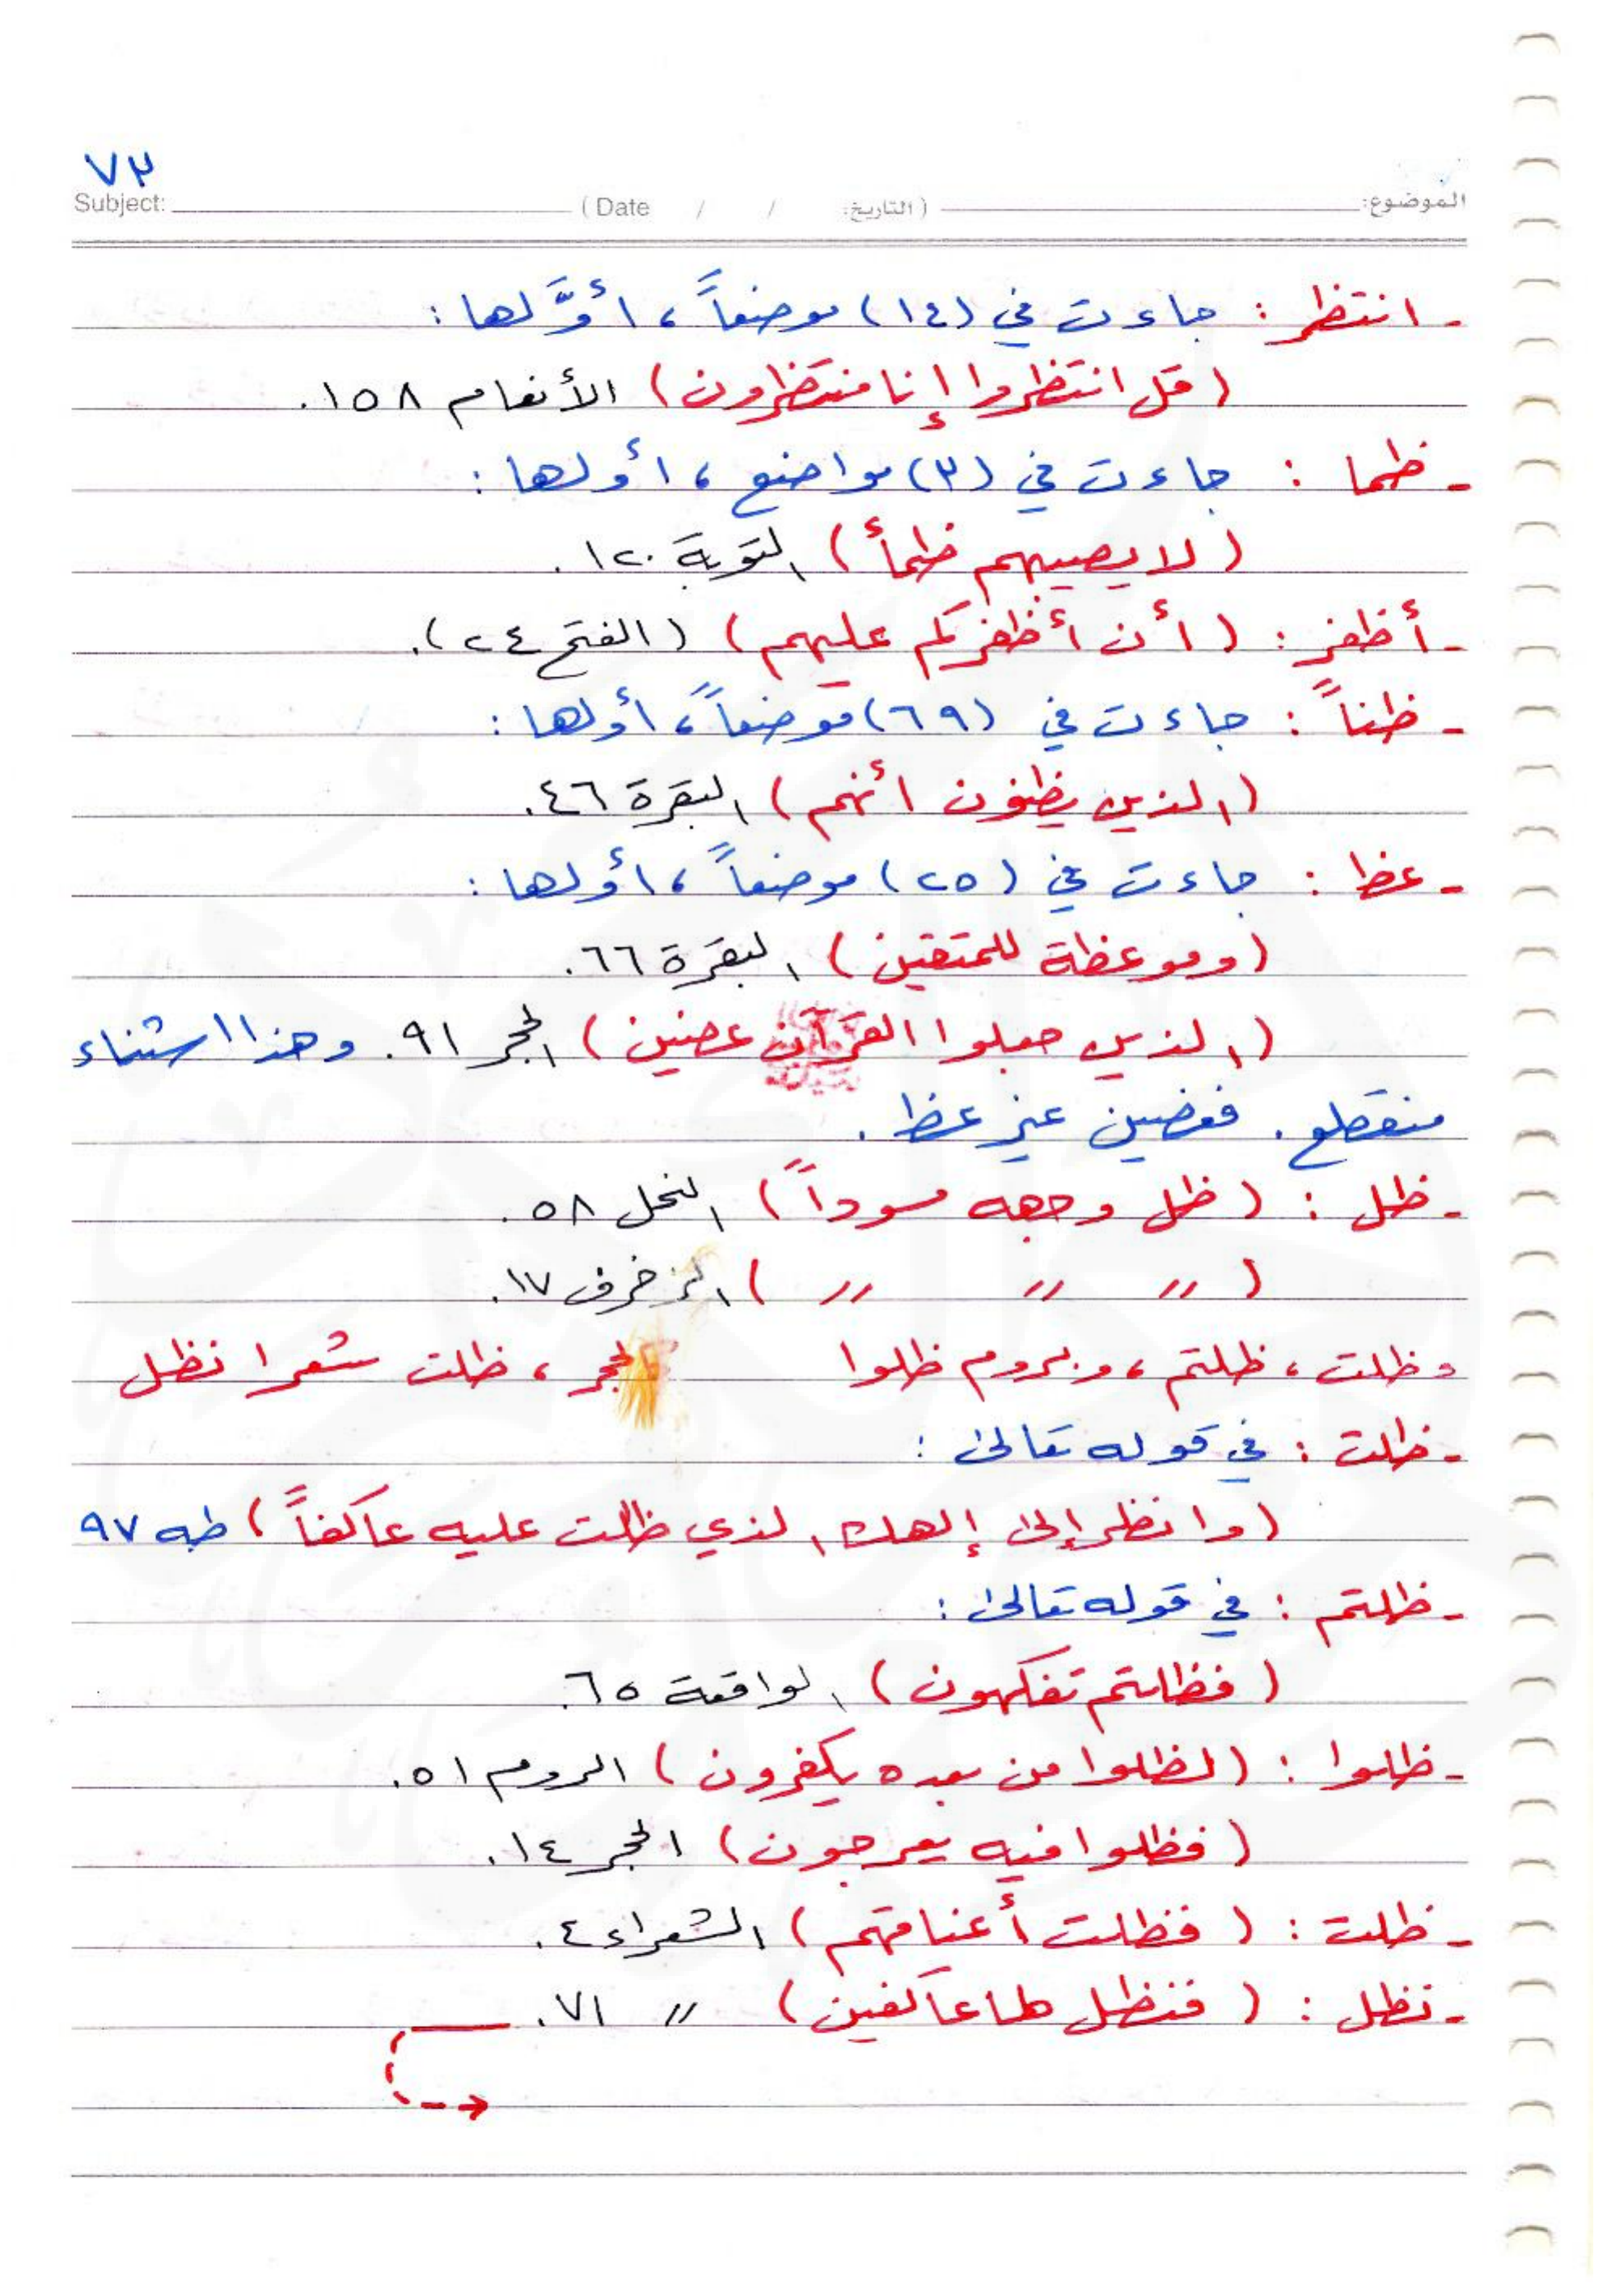 ٧٣
Subject: (Date / / التاريخ:) الموضوع:
- انتظر : جاءت في (١٤) موضعاً، أوَّلها :
(قل انتظروا إنا منتظرون) الأنعام ١٥٨.
- ظما : جاءت في (٣) مواضع، أولها :
(لا يصيبهم ظمأ) التوبة ١٢٠.
- أظفر : (أن أظفركم عليهم) (الفتح ٢٤).
- ظناً : جاءت في (٦٩) موضعاً، أولها :
(الذين يظنون أنهم) البقرة ٤٦.
- عظ : جاءت في (٢٥) موضعاً، أولها :
(وموعظة للمتقين) البقرة ٦٦.
(الذين جعلوا القرآن عضين) الحجر ٩١. وهذا استثناء
منقطع. فعضين غير عظ.
- ظل : (ظل وجهه مسوداً) النحل ٥٨.
( 〃 〃 〃 ) الزخرف ١٧.
وظلت، ظلتم، وبروم ظلوا الحجر، ظلت شعرا نظل
- ظلت : في قوله تعالى :
(وانظر إلى إلهك الذي ظلت عليه عاكفاً) طه ٩٧
- ظلتم : في قوله تعالى :
(فظلتم تفكهون) الواقعة ٦٥.
- ظلوا : (لظلوا من بعده يكفرون) الروم ٥١.
(فظلوا فيه يعرجون) الحجر ١٤.
- ظلت : (فظلت أعناقهم) الشعراء ٤.
- نظل : (فنظل لها عاكفين) 〃 ٧١.